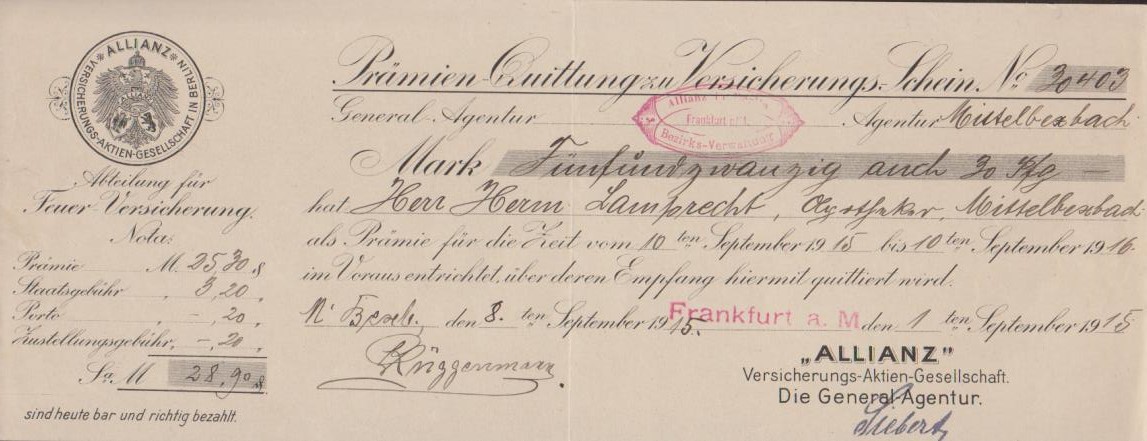 ALLIANZ
VERSICHERUNGS-AKTIEN-GESELLSCHAFT IN BERLIN
Abteilung für
Feuer-Versicherung.
Nota:
Prämie M. 25,30 ₰
Staatsgebühr „ 3,20 „
Porto „ -,20 „
Zustellungsgebühr „ -,20 „
Sa. M 28,90 ₰
sind heute bar und richtig bezahlt.
Prämien-Quittung zu Versicherungs-Schein No 30403
General-Agentur Agentur Mittelbexbach
Allianz
Frankfurt
Bezirks-Verwaltung
Mark Fünfundzwanzig auch 30 Pfg —
hat Herr Herm Lamprecht, Apotheker, Mittelbexbach
als Prämie für die Zeit vom 10 ten September 1915 bis 10 ten September 1916
im Voraus entrichtet, über deren Empfang hiermit quittiert wird.
M' Bexb., den 8. ten September 1915. Frankfurt a. M den 1 ten September 1915
Brüggemann
„ALLIANZ"
Versicherungs-Aktien-Gesellschaft.
Die General-Agentur.
Siebert